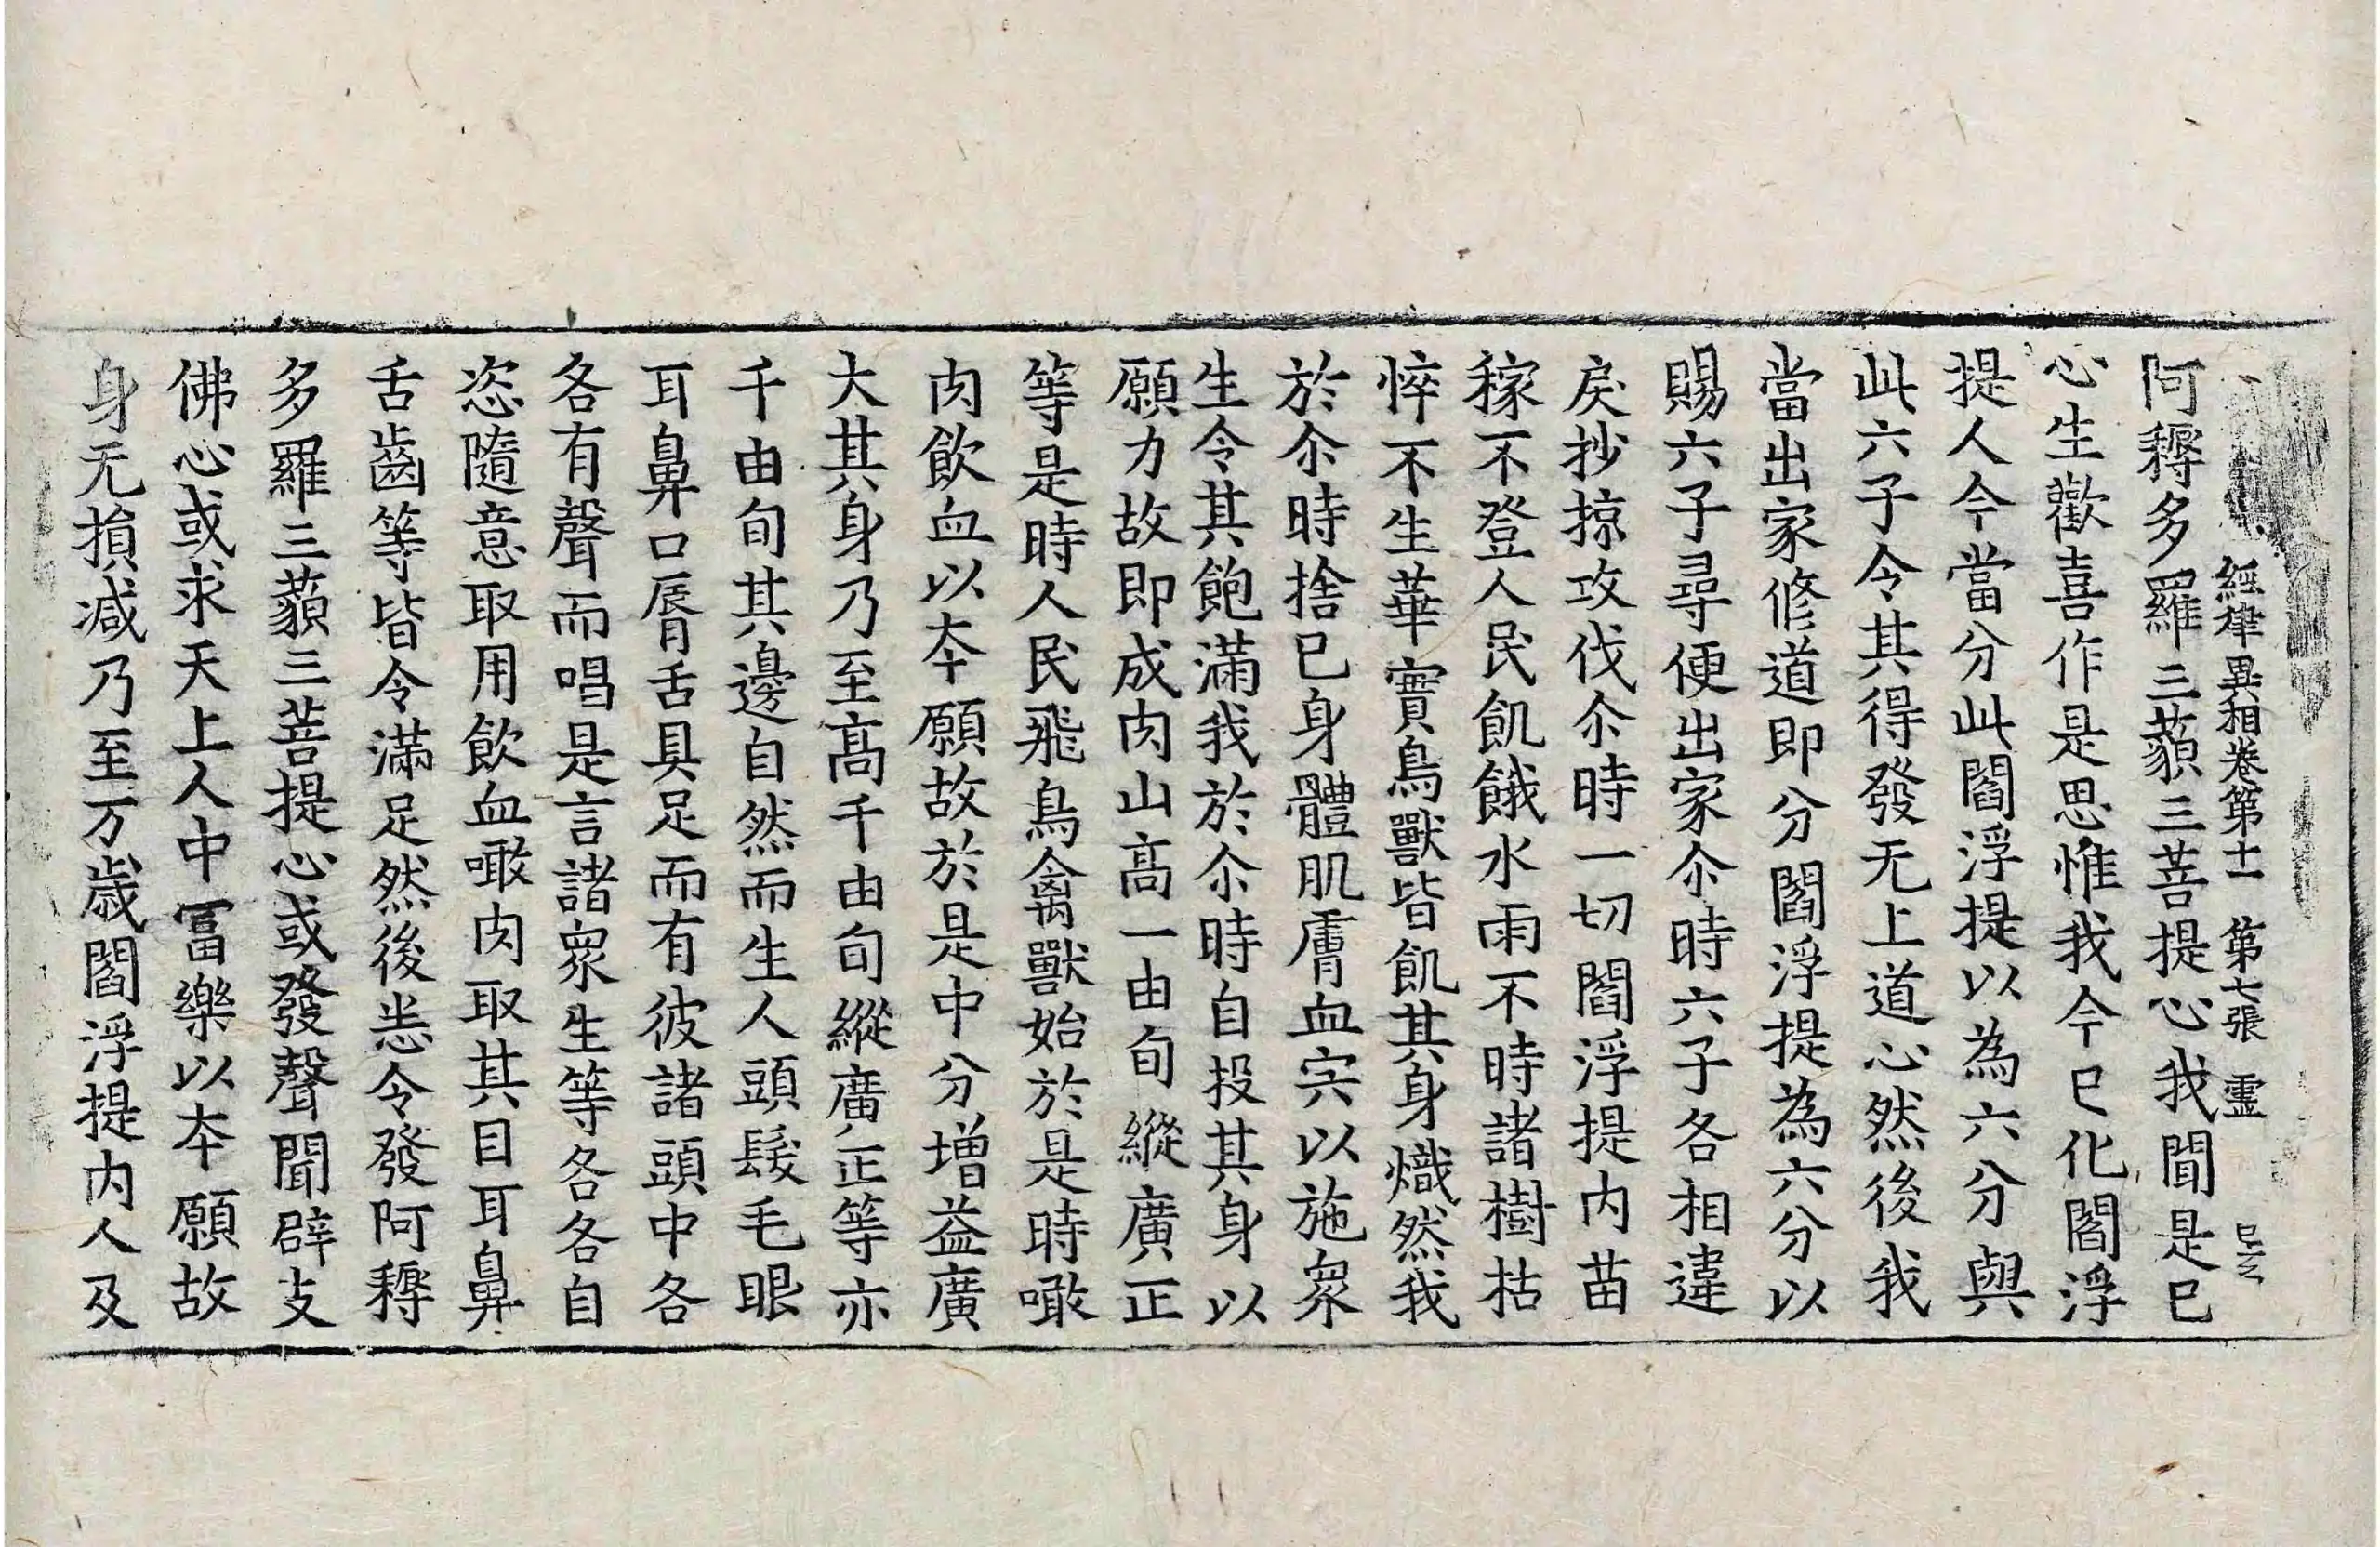 經律異相卷第十一 第七張 靈
阿耨多羅三藐三菩提心我聞是已
心生歡喜作是思惟我今已化閻浮
提人今當分此閻浮提以為六分與
此六子令其得發无上道心然後我
當出家修道即分閻浮提為六分以
賜六子尋便出家尒時六子各相違
戾抄掠攻伐尒時一切閻浮提内苗
稼不登人民飢餓水雨不時諸樹枯
悴不生華實鳥獸皆飢其身熾然我
於尒時捨已身體肌膚血宍以施衆
生令其飽滿我於尒時自投其身以
願力故即成肉山高一由旬縱廣正
等是時人民飛鳥禽獸始於是時噉
肉飲血以夲願故於是中分增益廣
大其身乃至髙千由旬縱廣正等亦
千由旬其邊自然而生人頭髮毛眼
耳鼻口脣舌具足而有彼諸頭中各
各有聲而唱是言諸衆生等各各自
恣隨意取用飲血噉肉取其目耳鼻
舌齒等皆令滿足然後悉令發阿耨
多羅三藐三菩提心或發聲聞辟支
佛心或求天上人中冨樂以夲願故
身无損减乃至万歲閻浮提内人及